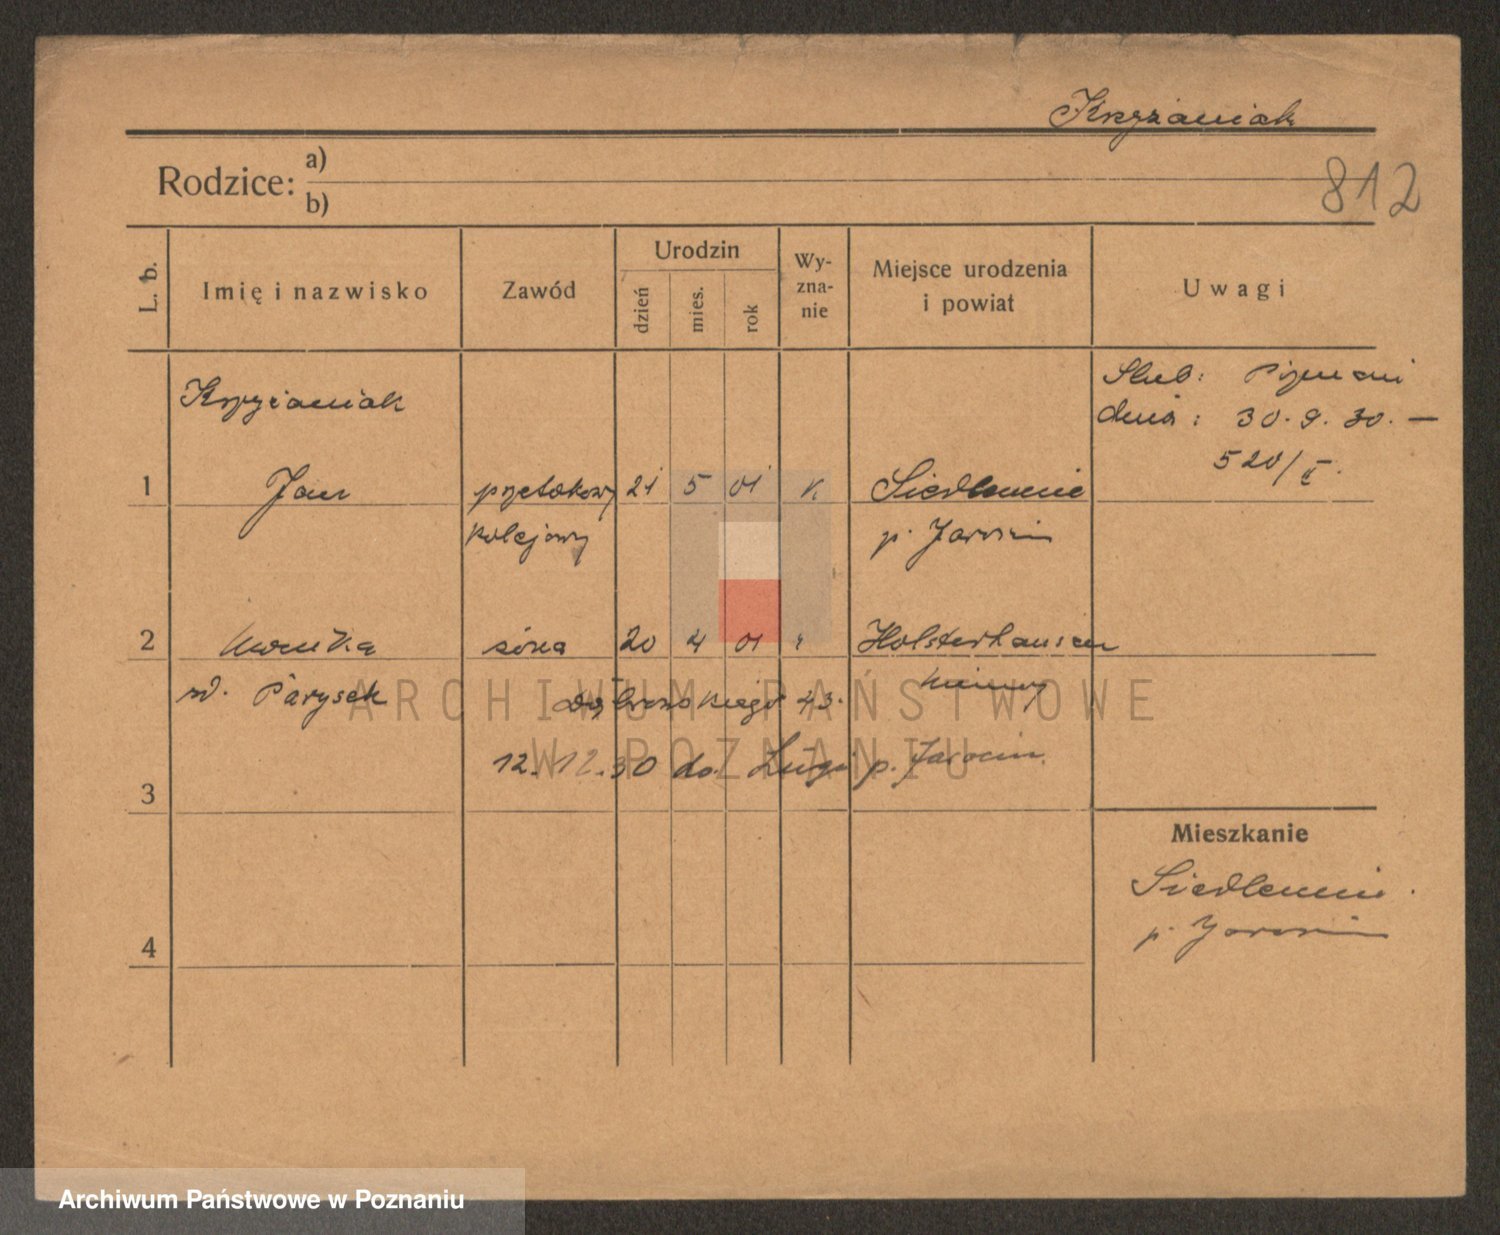 Krzyżaniak
812
Rodzice: a)
b)
L. b.
Imię i nazwisko
Zawód
Urodzin
dzień
mies.
rok
Wy-
zna-
nie
Miejsce urodzenia
i powiat
Uwagi
Ślub: Poznań
dnia: 30.9.30. —
520/II.
Krzyżaniak
1 Jan przetokowy 21 5 01 k. Siedlemin
kolejowy p. Jarocin
2 żona 20 4 01 " Holsterhausen
zd. Parysek Niemcy
Dąbrowskiego 43.
12.12.30 do Ługi p. Jarocin.
3
Mieszkanie
Siedlemin.
p. Jarocin
4
ARCHIWUM PAŃSTWOWE
W POZNANIU
Archiwum Państwowe w Poznaniu